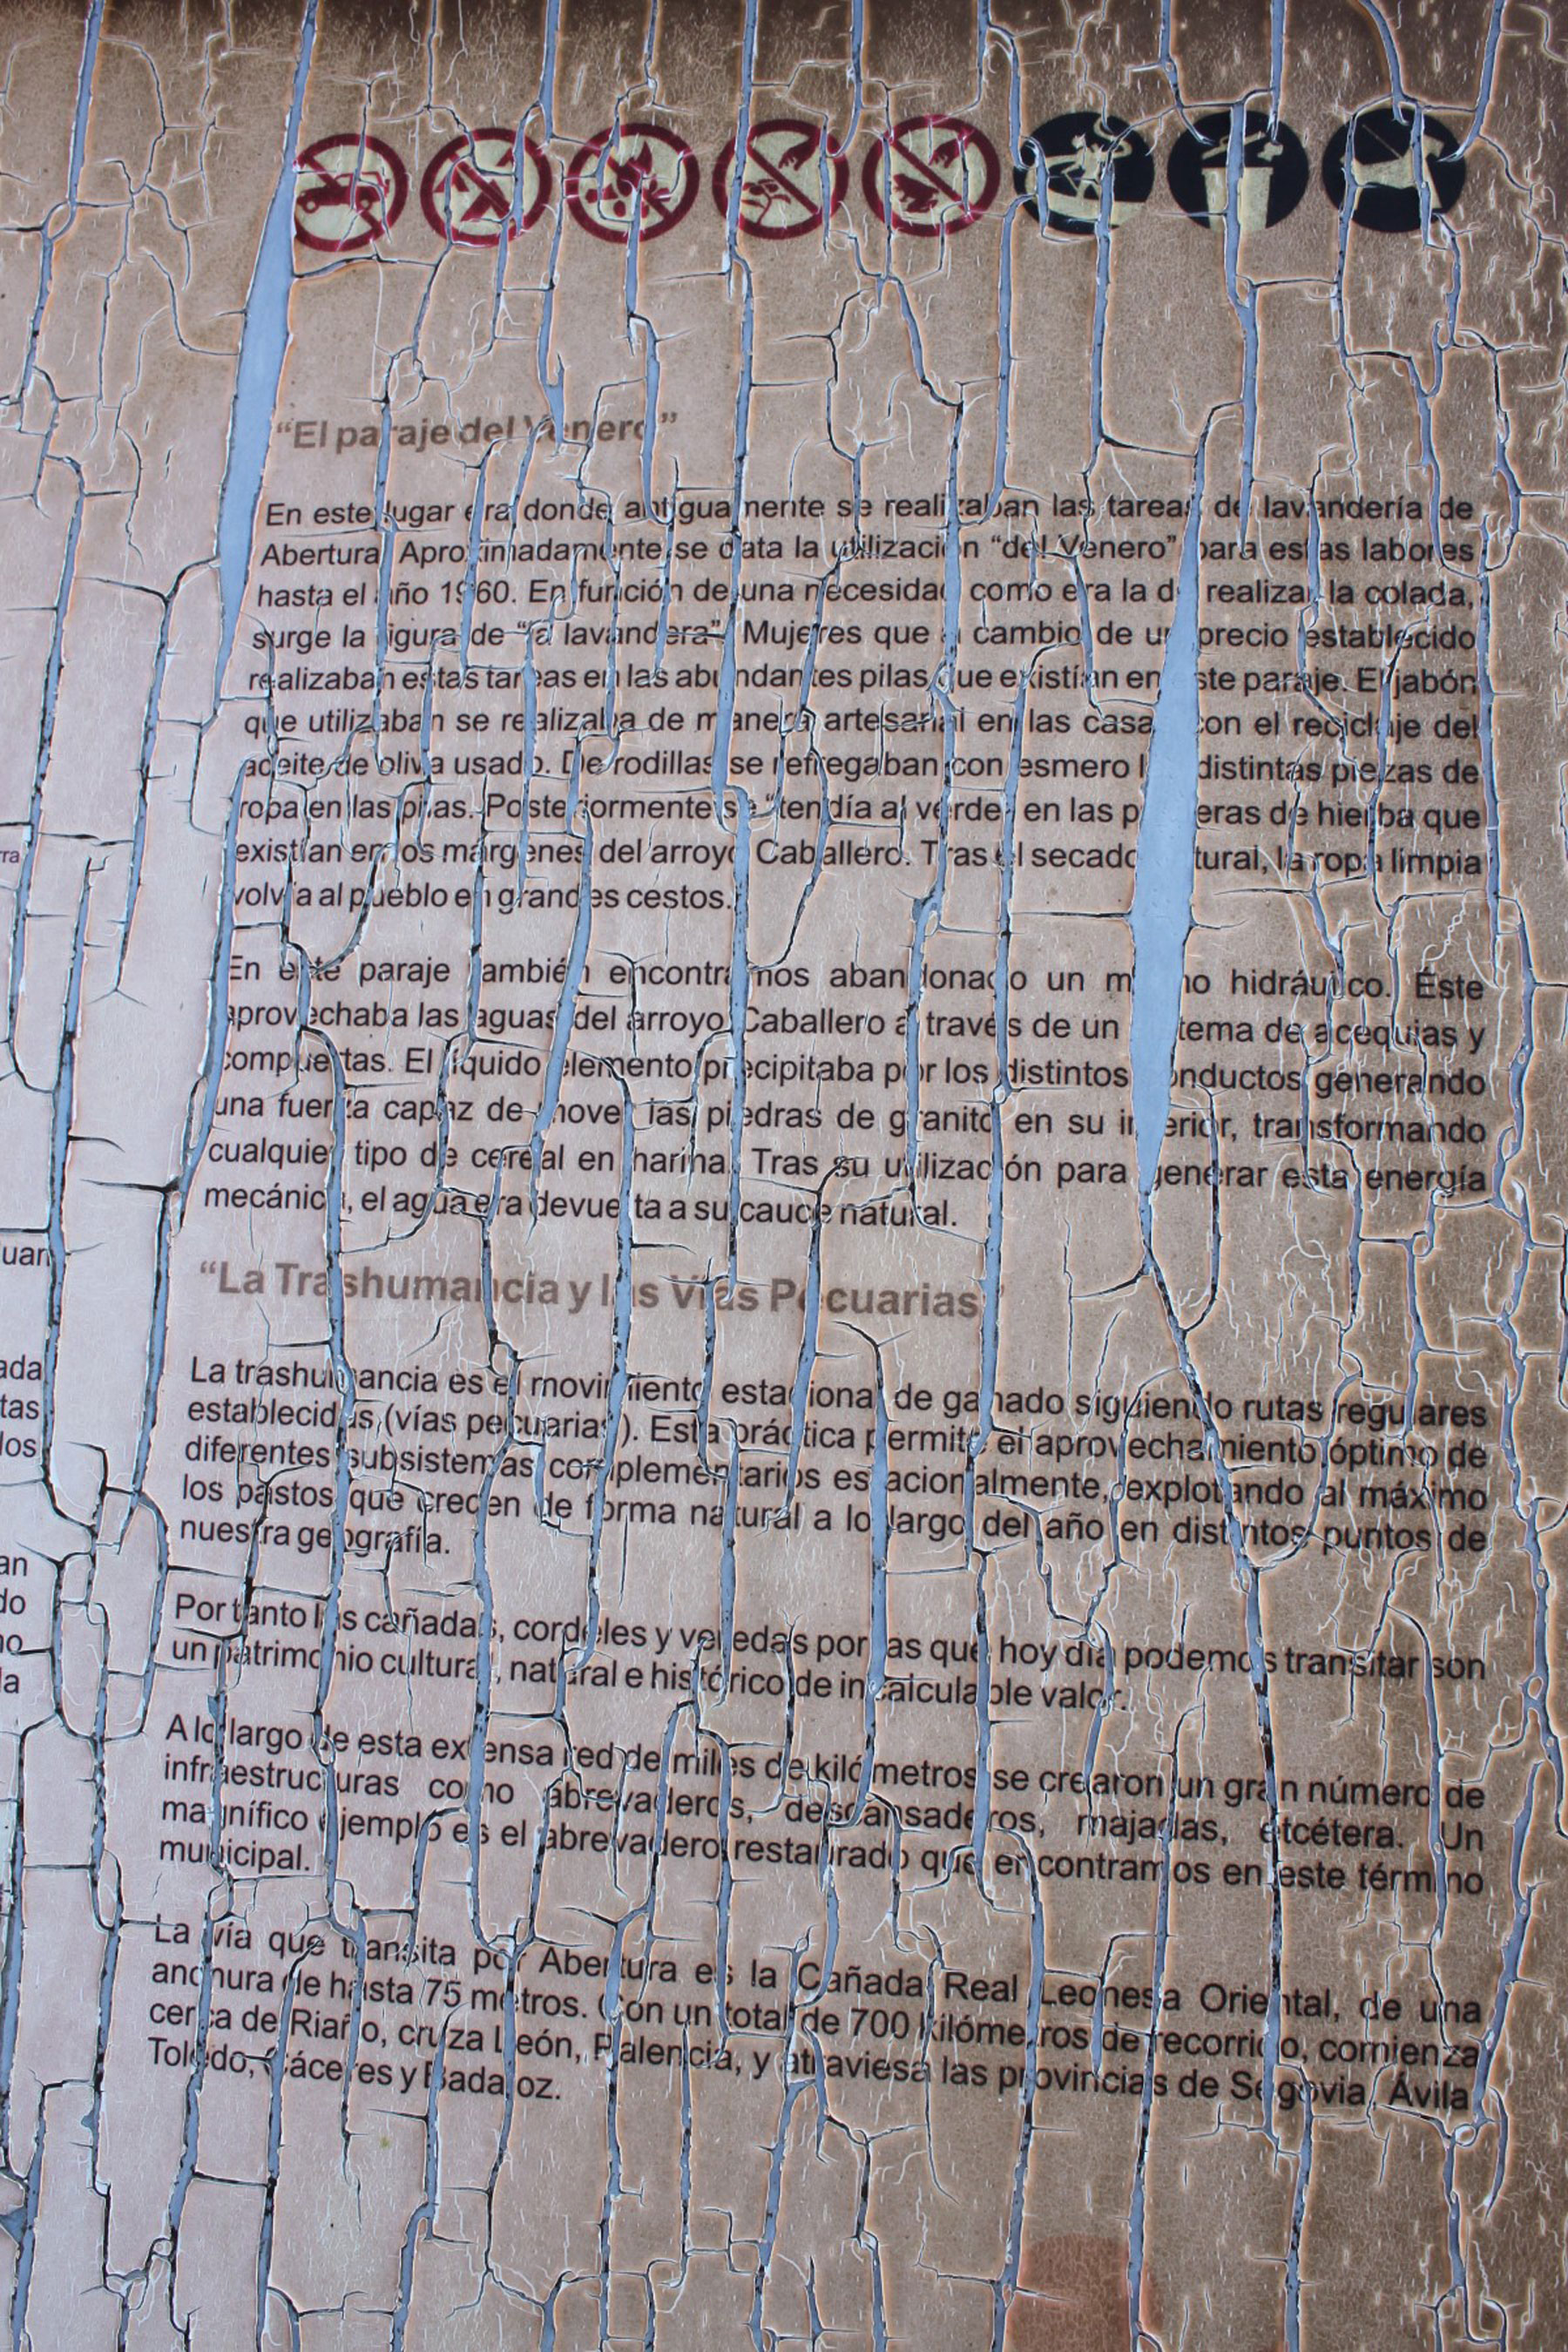 “El paraje del Venero”
En este lugar era donde antiguamente se realizaban las tareas de lavandería de
Abertura. Aproximadamente se data la utilización “del Venero” para estas labores
hasta el año 1960. En función de una necesidad como era la de realizar la colada,
surge la figura de “la lavandera”. Mujeres que a cambio de un precio establecido
realizaban estas tareas en las abundantes pilas que existían en este paraje. El jabón
que utilizaban se realizaba de manera artesanal en las casas con el reciclaje del
aceite de oliva usado. De rodillas se refregaban con esmero las distintas piezas de
ropa en las pilas. Posteriormente se “tendía al verde” en las praderas de hierba que
existían en los márgenes del arroyo Caballero. Tras el secado natural, la ropa limpia
volvía al pueblo en grandes cestos.
En este paraje también encontramos abandonado un molino hidráulico. Éste
aprovechaba las aguas del arroyo Caballero a través de un sistema de acequias y
compuertas. El líquido elemento precipitaba por los distintos conductos generando
una fuerza capaz de mover las piedras de granito en su interior, transformando
cualquier tipo de cereal en harina. Tras su utilización para generar esta energía
mecánica, el agua era devuelta a su cauce natural.
“La Trashumancia y las Vías Pecuarias”
La trashumancia es el movimiento estacional de ganado siguiendo rutas regulares
establecidas (vías pecuarias). Esta práctica permite el aprovechamiento óptimo de
diferentes subsistemas complementarios estacionalmente, explotando al máximo
los pastos que crecen de forma natural a lo largo del año en distintos puntos de
nuestra geografía.
Por tanto las cañadas, cordeles y veredas por las que hoy día podemos transitar son
un patrimonio cultural, natural e histórico de incalculable valor.
A lo largo de esta extensa red de miles de kilómetros se crearon un gran número de
infraestructuras como abrevaderos, descansaderos, majadas, etcétera. Un
magnífico ejemplo es el abrevadero restaurado que encontramos en este término
municipal.
La vía que transita por Abertura es la Cañada Real Leonesa Oriental, de una
anchura de hasta 75 metros. Con un total de 700 kilómetros de recorrido, comienza
cerca de Riaño, cruza León, Palencia, y atraviesa las provincias de Segovia, Ávila,
Toledo, Cáceres y Badajoz.